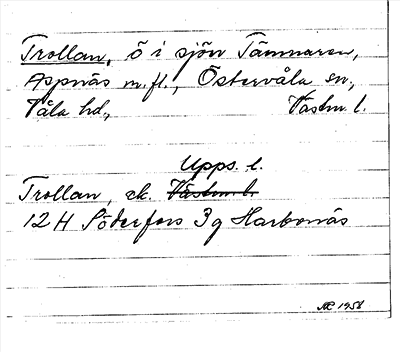 Trollan, ö i sjön Tämnaren,
Aspnäs m.fl., Östervåla sn,
Våla hd, Västm l.
Upps. l.
Trollan, ek. Västm l.
12 H Söderfors 3g Harbonäs
1958